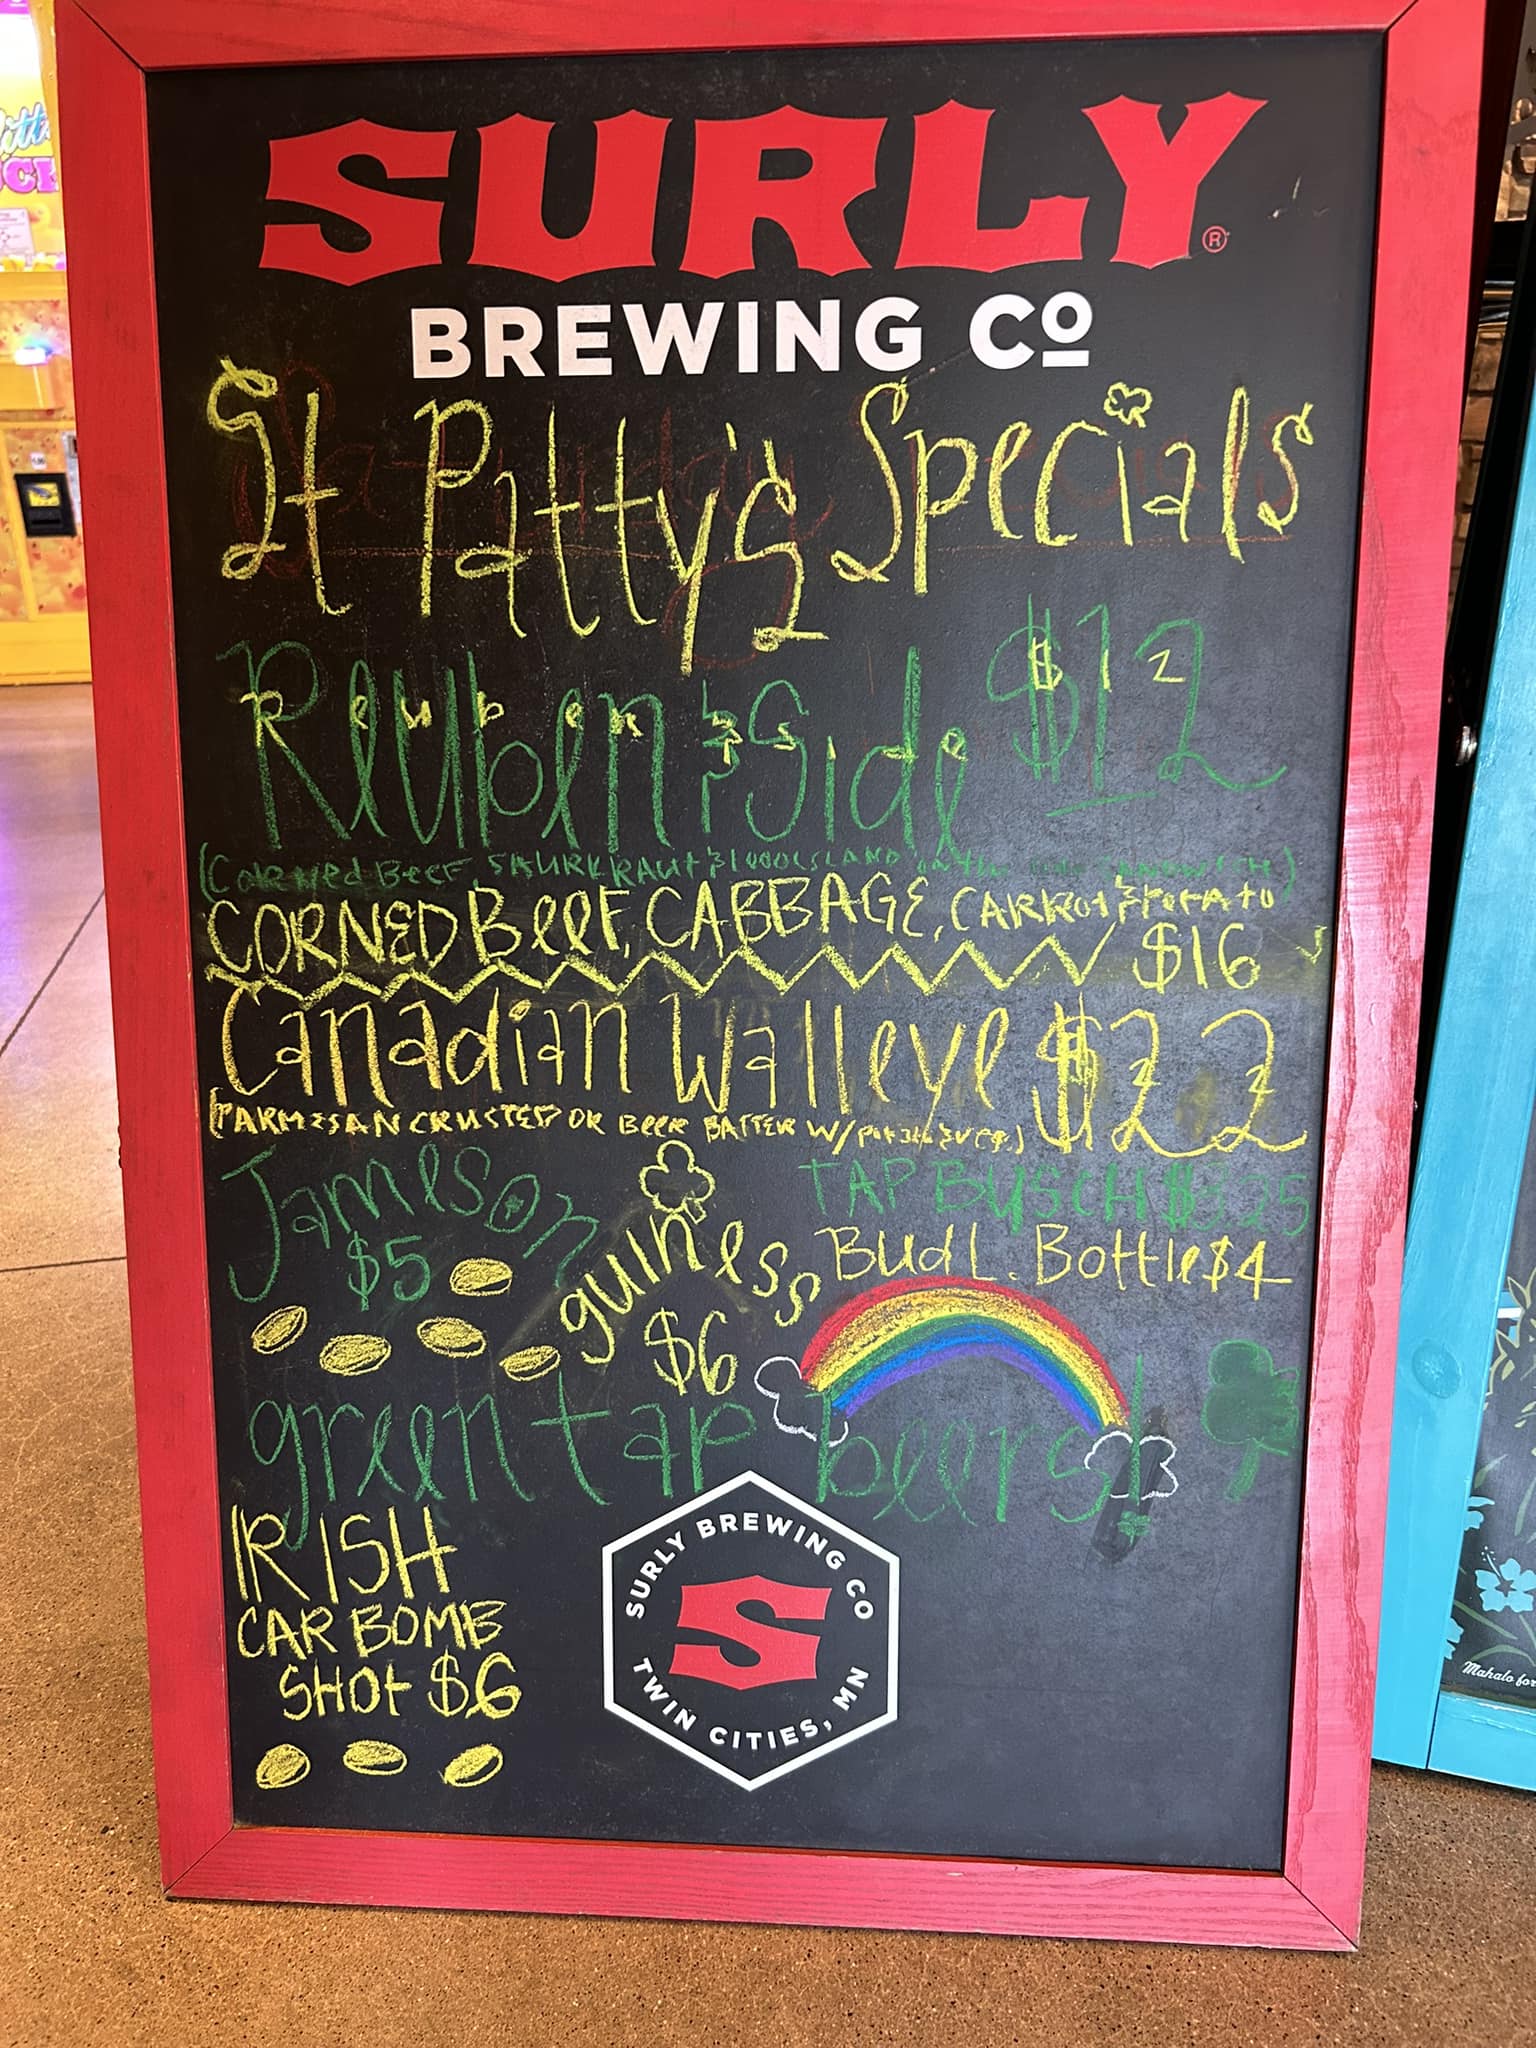 SURLY®
BREWING Cº
St Patty's Specials
Reuben & Side $12
(CORNED BEEF, SAURKRAUT & 1000 ISLAND SANDWICH)
CORNED Beef, CABBAGE, CARROT & POTATO
$16
Canadian Walleye $22
(PARMESAN CRUSTED OR BEER BATTER W/ POTATO & VEG.)
Jameson
$5
guiness
$6
TAP BUSCH $3.25
Bud L. Bottle $4
green tap beers!
IRISH
CAR BOMB
SHOt $6
SURLY BREWING CO
S
TWIN CITIES, MN
Mahalo for